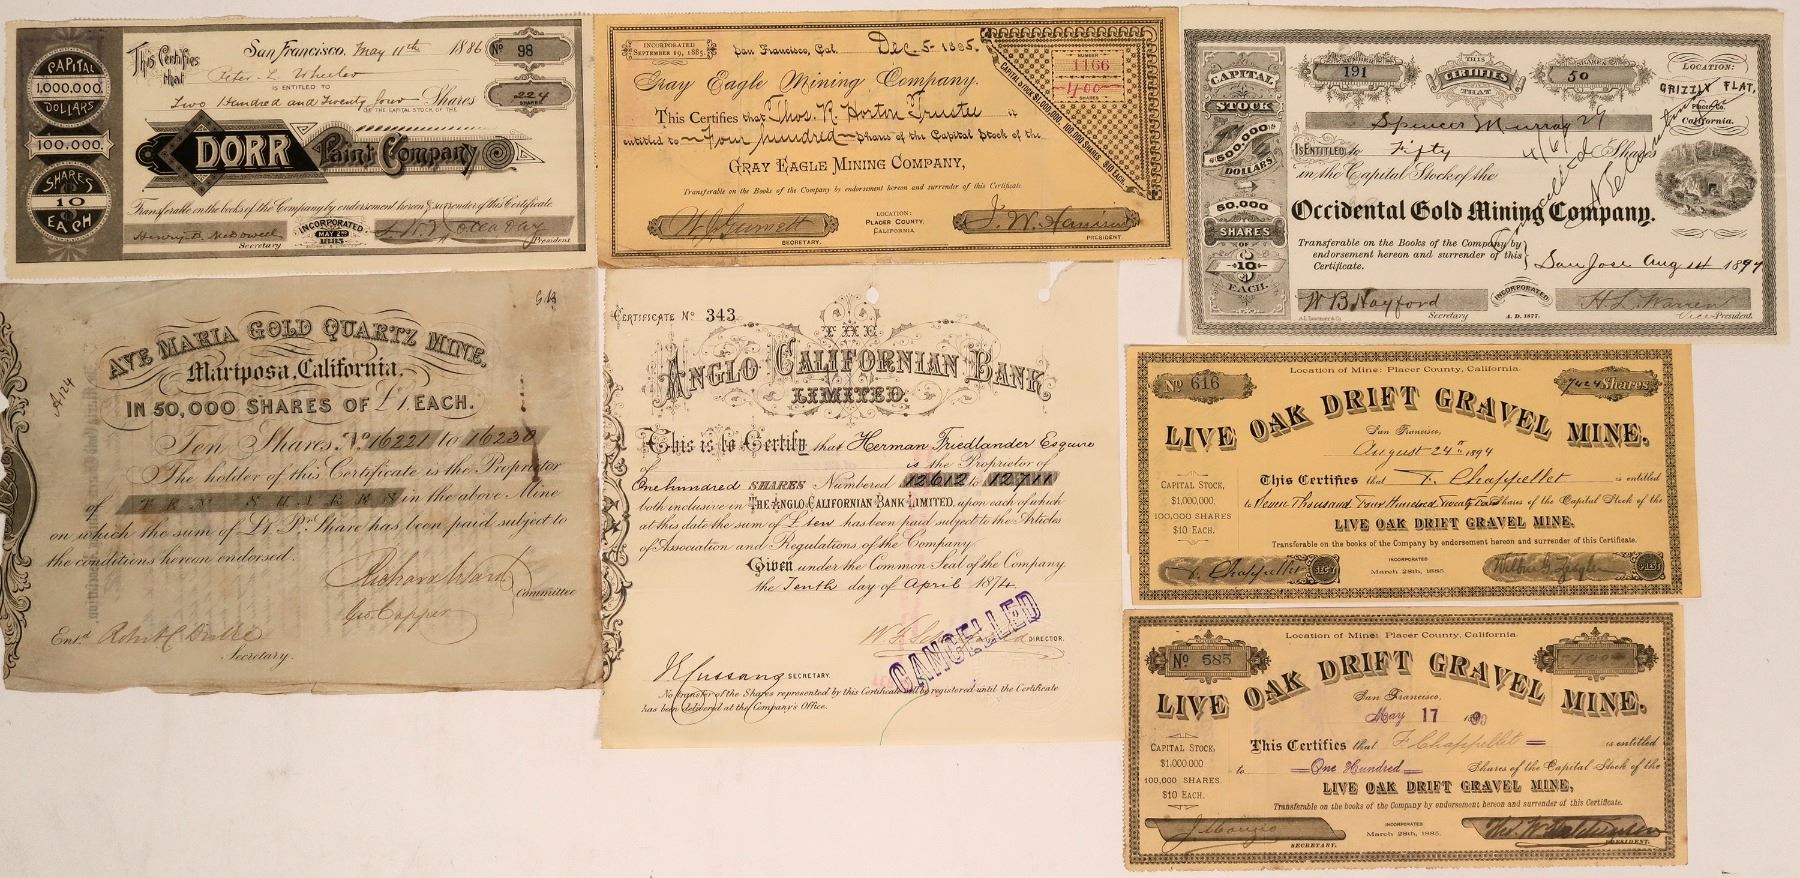 CAPITAL
1,000,000
DOLLARS
100,000
SHARES
10
EACH
This Certifies that
San Francisco, May 11th 1886
No 98
Peter L. Wheeler
IS ENTITLED TO
Two Hundred and Twenty four Shares
224
SHARES
OF THE CAPITAL STOCK OF THE
DORR Paint Company
Transferable on the books of the Company by endorsement hereon & surrender of this Certificate
INCORPORATED
MAY 2ND
1885
Henry B. McDowell
Secretary
President
INCORPORATED
SEPTEMBER 19, 1885.
San Francisco, Cal. Dec. 5- 1895.
NUMBER
1166
400
SHARES
CAPITAL STOCK $1,000,000, 100,000 SHARES, $10 EACH.
Gray Eagle Mining Company.
This Certifies that Thos. R. Horton Trustee is
entitled to Four hundred Shares of the Capital Stock of the
GRAY EAGLE MINING COMPANY,
Transferable on the Books of the Company by endorsement hereon and surrender of this Certificate
SECRETARY.
LOCATION:
PLACER COUNTY,
CALIFORNIA
PRESIDENT
CAPITAL
STOCK
500,000
DOLLARS
50,000
SHARES
OF
10
EACH.
NUMBER
191
THIS
CERTIFIES
THAT
SHARES
50
LOCATION:
GRIZZLY FLAT,
Placer Co.
California.
Spencer Murray
IS ENTITLED to Fifty Shares
in the Capital Stock of the
Occidental Gold Mining Company.
Transferable on the Books of the Company by
endorsement hereon and surrender of this
Certificate.
San Jose Aug 14 1897
W B Hayford
Secretary
INCORPORATED
A. D. 1877.
H. L. Warren
Vice-President
G.B
A.124
AVE MARIA GOLD QUARTZ MINE,
Mariposa, California,
IN 50,000 SHARES OF £1. EACH.
Ten Shares, No 16221 to 16230
The holder of this Certificate is the Proprietor
of TEN SHARES in the above Mine
on which the sum of £1. Pr Share has been paid subject to
the conditions hereon endorsed.
Richard Ward
Geo. Capper
Committee
Entd
Secretary.
CERTIFICATE No 343
THE
ANGLO CALIFORNIAN BANK
LIMITED.
This is to Certify that Herman Friedlander Esquire
of is the Proprietor of
One hundred SHARES Numbered 12612 to 12711
both inclusive in THE ANGLO-CALIFORNIAN BANK LIMITED, upon each of which
at this date the sum of £ ten has been paid subject to the Articles
of Association and Regulations of the Company.
Given under the Common Seal of the Company
the Tenth day of April 1874
DIRECTOR.
CANCELLED
SECRETARY.
No transfer of the Shares represented by this Certificate will be registered until the Certificate
has been delivered at the Company's Office.
No 616
Location of Mine: Placer County, California.
7424 Shares
LIVE OAK DRIFT GRAVEL MINE.
San Francisco,
August 24th 1894
CAPITAL STOCK,
$1,000,000.
100,000 SHARES
$10 EACH.
This Certifies that F. Chappellet is entitled
to Seven Thousand Four Hundred Twenty Shares of the Capital Stock of the
LIVE OAK DRIFT GRAVEL MINE.
Transferable on the books of the Company by endorsement hereon and surrender of this Certificate.
F. Chappellet SECY
INCORPORATED
March 28th, 1885.
PREST
Location of Mine: Placer County, California.
No 585
100
LIVE OAK DRIFT GRAVEL MINE.
San Francisco,
May 17 1890
CAPITAL STOCK,
$1,000,000
100,000 SHARES.
$10 EACH.
This Certifies that F. Chappellet is entitled
to One Hundred Shares of the Capital Stock of the
LIVE OAK DRIFT GRAVEL MINE,
Transferable on the books of the Company by endorsement hereon and surrender of this Certificate.
SECRETARY.
INCORPORATED
March 28th, 1885.
PRESIDENT.